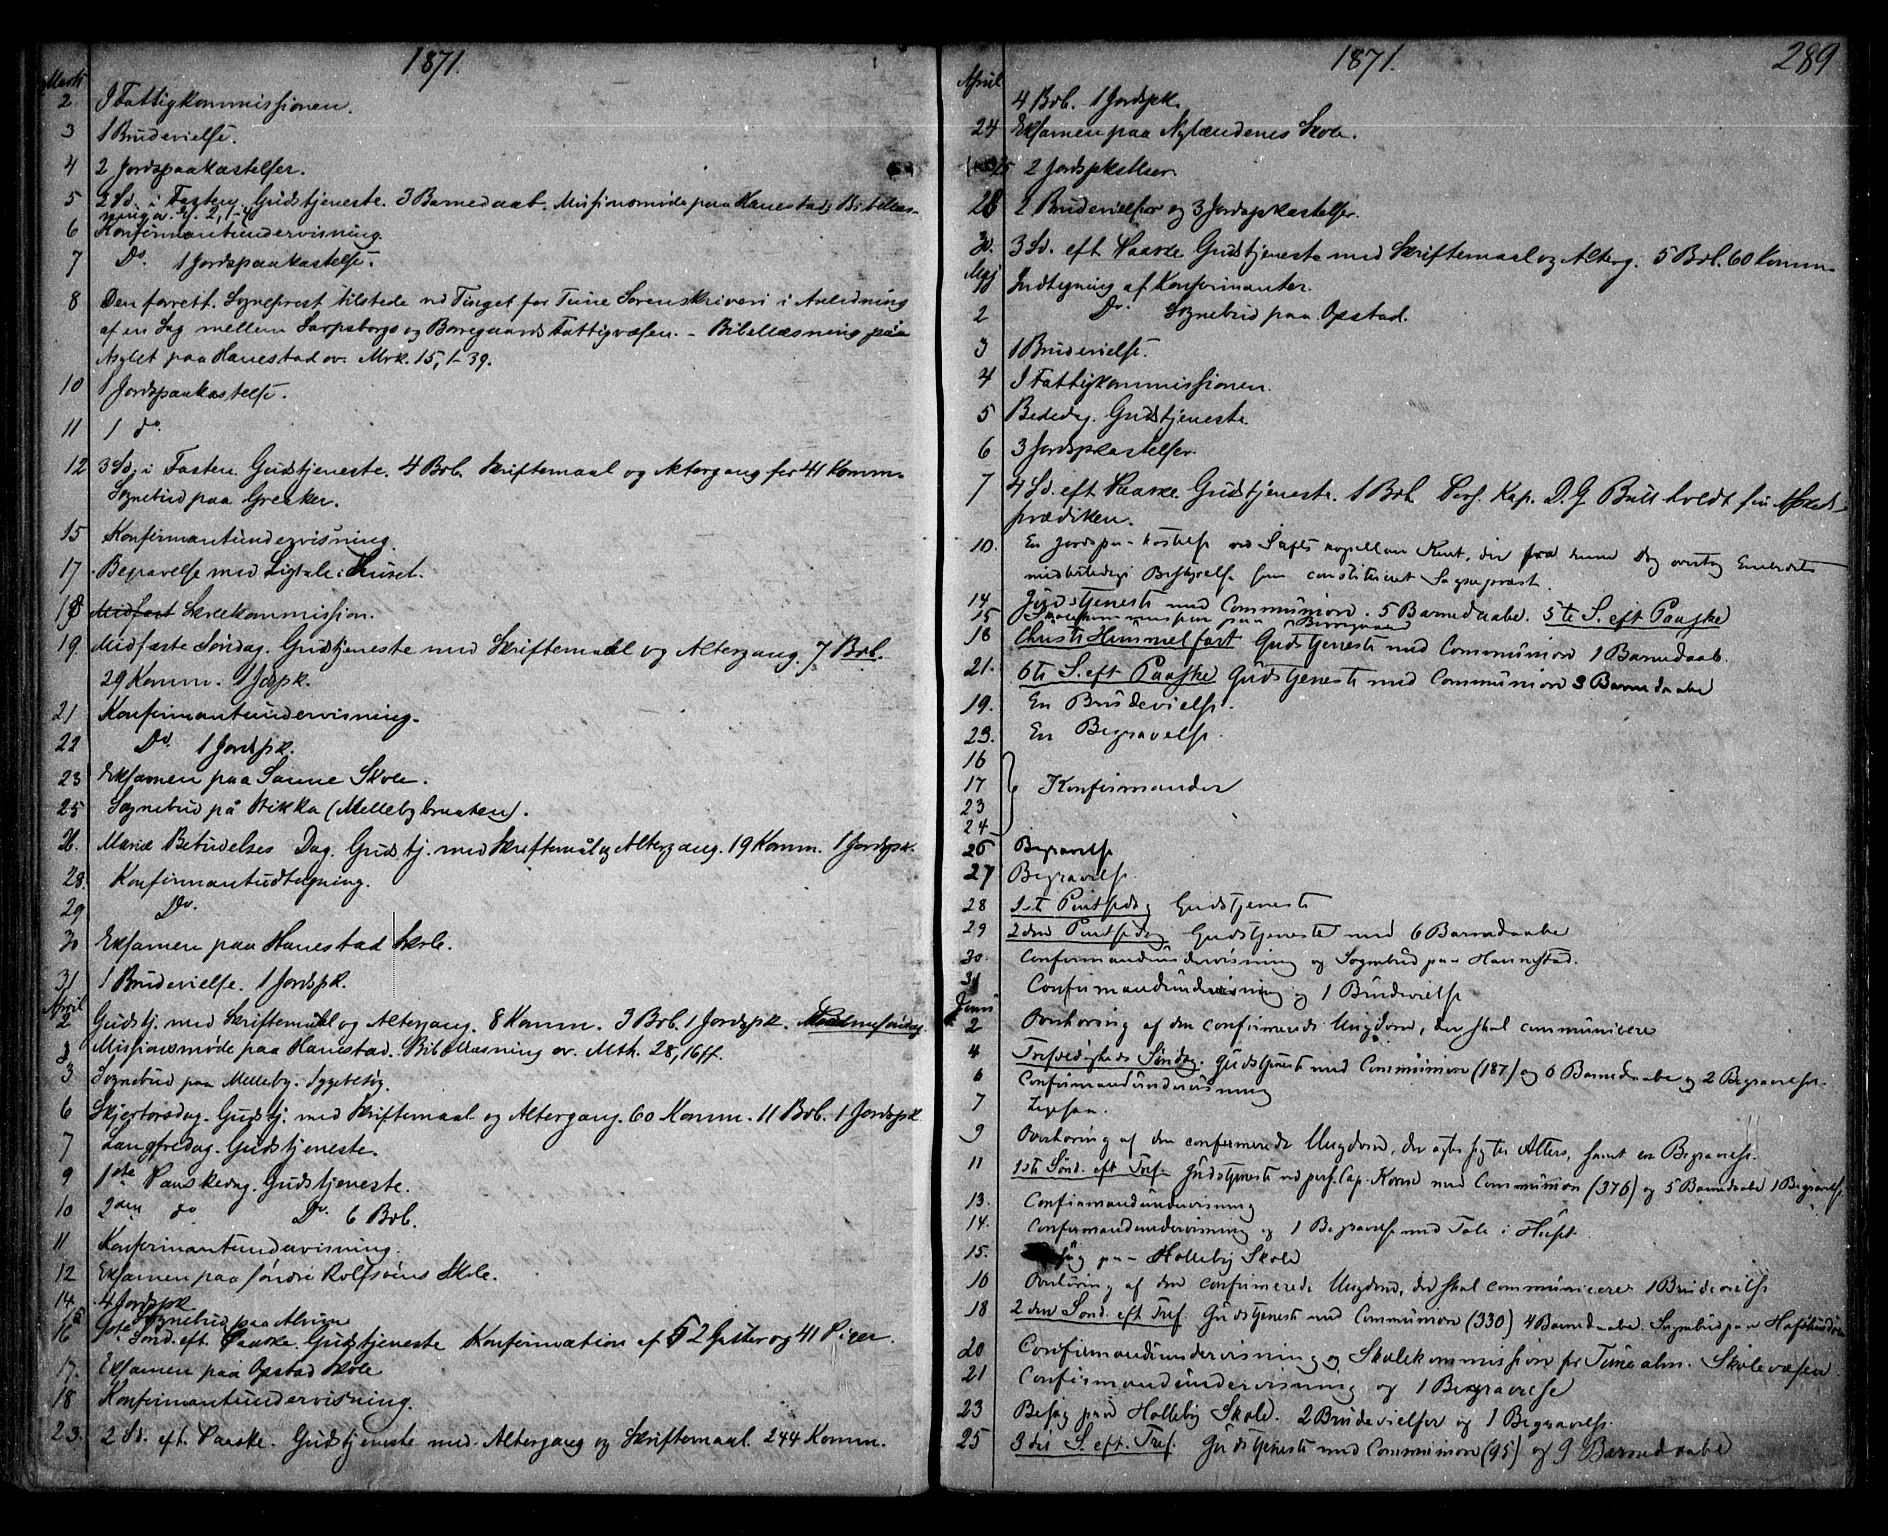 1871.
Marts
2 I Fattigkommissionen.
3 1 Brudevielse.
4 2 Jordspaakastelser.
5 2 Sd. i Fasten. Gudstjeneste. 3 Barnedaab. Missionsmøde paa Hanestad; Bibellæs-
ning o. 2, 1-
6 Konfirmantundervisning.
7 Do. 1 Jordspaakastelse.
8 Den forrett. Sogneprest tilstede ved Tinget for Tune Sorenskriveri i Anledning
af en Sag mellem Sarpsborgs og Borregaards Fattigvæsen. - Bibellæsning paa
Asylet paa Hanestad ov. Mrk. 15, 1-39.
10 1 Jordspaakastelse.
11 1 do
12 3 Sd. i Fasten. Gudstjeneste. 4 Brb. Skriftemaal og Altergang for 41 Komm.
Sognebud paa Greaker.
15 Konfirmantundervisning.
17 Begravelse med Ligtale i Huset.
18 Midfast Skolekommission.
19. Midfaste Søndag. Gudstjeneste med Skriftemaal og Altergang. 7 Brb.
29 Komm. 1 Jordspk.
21 Konfirmantundervisning.
22 Do. 1 Jordspk.
23 Eksamen paa Sanne Skole.
25 Sognebud på Stikka (Mellebybraaten).
26. Mariæ Bebudelses Dag. Gudstj. med Skriftemål og Altergang. 19 Komm. 1 Jordspk.
28. Konfirmantudtegning.
29 Do.
30 Eksamen paa Hanestad Skole.
31 1 Brudevielse. 1 Jordspk.
April
2 Gudstj. med Skriftemål og Altergang. 8 Komm. 3 Brb. 1 Jordspk. Palmesøndag.
3 Missionsmøde paa Hanestad. Bibellæsning ov. Mth. 28, 16 ff.
3 Sognebud paa Melleby. Sygebesøg.
6 Skjertorsdag. Gudstj. med Skriftemaal og Altergang. 60 Komm. 11 Brb. 1 Jordspk
7 Langfredag. Gudstjeneste.
9 1ste Paaskedag. Gudstjeneste.
10 2den do Do. 6 Brb.
11 Konfirmantundervisning.
12 Eksamen paa søndre Rolfsøens Skole.
14. 4 Jordspk.
15 Sognebud paa Alvim
16 1ste Sønd. eft. Paaske. Gudstjeneste Konfirmation af 52 Gutter og 41 Piger.
17. Eksamen paa Opstad Skole
18 Konfirmantundervisning.
23. 2 Sd. eft. Paaske. Gudstjeneste med Altergang og Skriftemaal. 244 Komm.
1871.
289
April
4 Brb. 1 Jordspk.
24 Eksamen paa Nylændenes Skole.
25 2 Jordspkstlser.
28 2 Brudevielser og 3 Jordspkastelser.
30. 3 Sd. eft. Paaske Gudstjeneste med Skriftemaal og Alterg. 5 Brb. 60 Komm.
Maj Indtegning af Konfirmanter.
2 Do. Sognebud paa Opstad.
3 1 Brudevielse.
4 I Fattigkommissionen.
5 Bededag. Gudstjeneste
6 3 Jordspkastelser.
7 4 Sd. eft. Paaske. Gudstjeneste. 1 Brb. Pers. Kap. D. G. Bull holdt sin Afskeds-
prædiken.
10. En Jordspaakastelse ved Stiftskapellan Kent, der fra denne Dag overtog Embedets
midlertidige Bestyrelse som constitueret Sogneprest
14 Gudstjeneste med Communion. 5 Barnedaabe. 5te S. eft Paaske
15 Skolekommission paa Borregaard
18 Christi Himmelfart Gudstjeneste med Communion 1 Barnedaab.
21. 6te S. eft Paaske Gudstjeneste med Communion 3 Barnedaabe
19. En Brudevielse.
23. En Begravelse.
16
17 Konfirmander
23
24
26 Begravelse
27 Begravelse.
28 1ste Pintsedag Gudstjeneste
29 2den Pintsedag Gudstjeneste med 6 Barnedaabe
30. Confirmandundervisning og Sognebud paa Hannestad.
31 Confirmandundervisning og 1 Brudevielse
Juni
2 Overhøring af den confirmerede Ungdom, der skal communicere
4 Trefoldigheds Søndag. Gudstjeneste med Communion (187) og 6 Barnedaabe og 2 Begravelser.
6 Confirmandundervisning
7
9 Overhøring af den confirmerede Ungdom, der agter sig til Alters, samt en Begravelse.
11 1ste Sønd. eft Tref. Gudstjeneste ved pers. Cap. Korne med Communion (376) og 5 Barnedaabe 1 Begravelse.
13. Confirmandundervisning
14. Confirmandundervisning og 1 Begravelse med Tale i Huset
15. Besøg paa Holleby Skole
16 Overhøring af den confirmerede Ungdom, der skal communicere 1 Brudevielse
18 2den Sønd. eft Tref. Gudstjeneste med Communion (330) 4 Barnedaabe. Sognebud paa
20 Confirmandundervisning og Skolekommission for Tune alm. Skolevæsen
21 Confirmandundervisning og 1 Begravelse
23 Besøg paa Holleby Skole. 2 Brudevielser og 1 Begravelse.
25 3die S. eft. Tref. Gudstjeneste med Communion (95) og 9 Barnedaabe